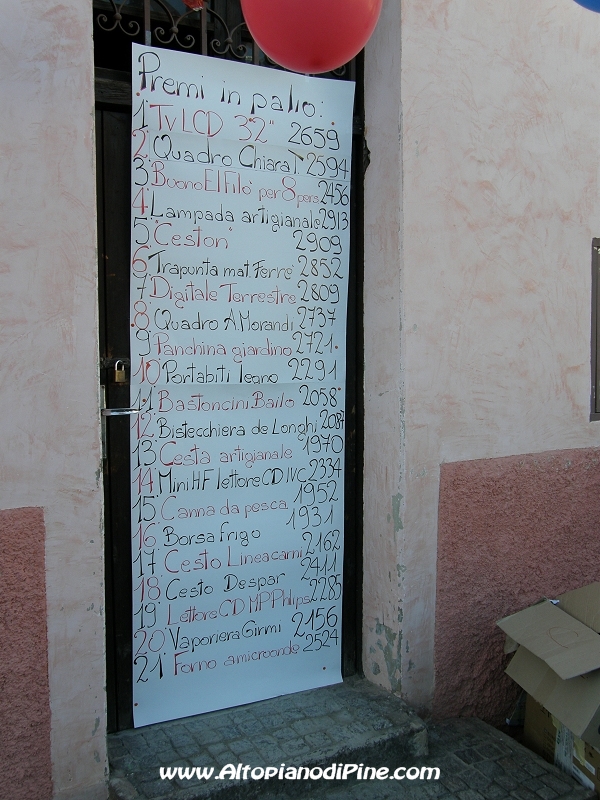 Premi in palio:
1° TV LCD 32" 2659
2° Quadro Chiara T. 2594
3° Buono El Filò per 8 pers. 2456
4° Lampada artigianale 2913
5° "Ceston" 2909
6° Trapunta mat. Ferrè 2852
7° Digitale Terrestre 2809
8° Quadro A Morandi 2737
9° Panchina giardino 2721
10° Portabiti legno 2291
11° Bastoncini Bailo 2058
12° Bistecchiera de Longhi 2087
13° Cesta artigianale 1970
14° Mini HF lettore CD JVC 2334
15° Canna da pesca 1952
16° Borsa frigo 1931
17° Cesto Lineacarni 2162
18° Cesto Despar 2411
19° Lettore CD MP Philips 2285
20° Vaporiera Girmi 2156
21° Forno a microonde 2524
www.AltopianodiPine.com